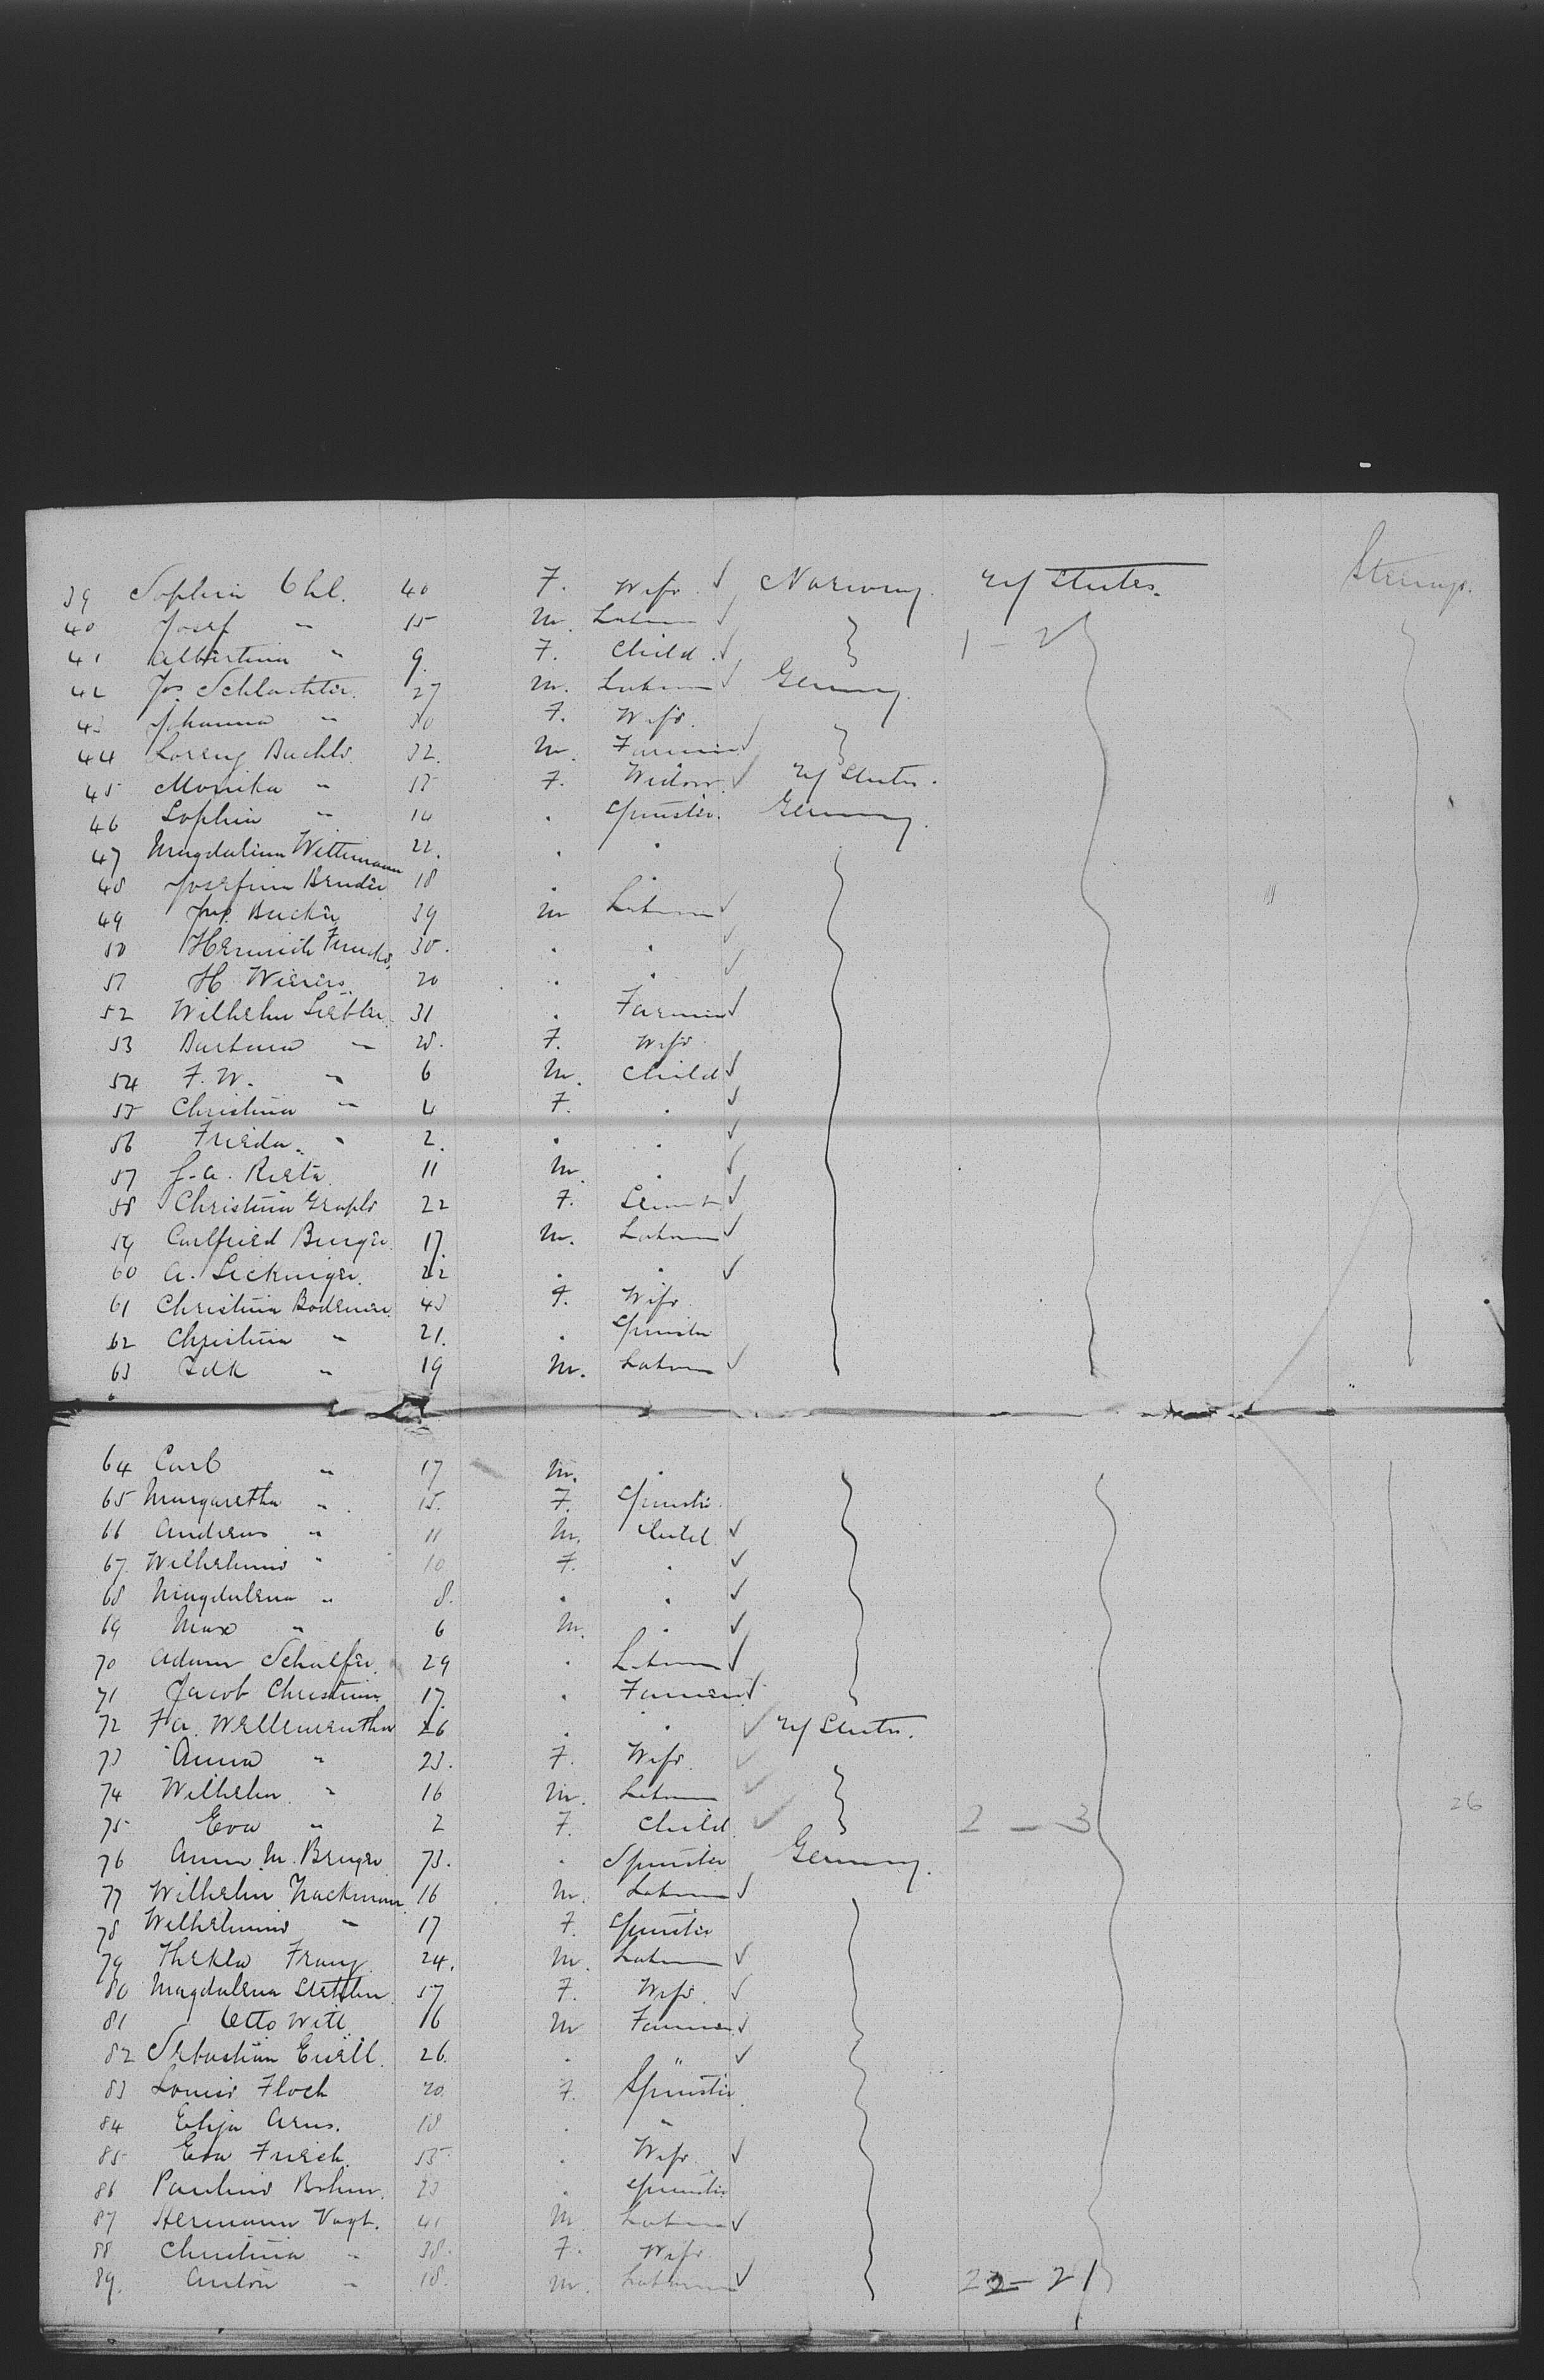 39 Sophia Ohl. 40 F. Wife Norway. U States. Steerage.
40 Josef " 15 M. Laborer 1 - 2
41 Albertina " 9. F. Child
42 Jos Schlachter. 27 M. Laborer Germany.
43 Johanna " 30 F. Wife.
44 Lorenz Buchle. 32. M. Farmer
45 Monika " F. Widow. U States.
46 Sophia " 14 . Spinster. Germany.
47 Magdalena Wittemann 22. . .
48 Josefina Bender 18 . .
49 Jos. Bucker 39 M Laborer
50 Heinrich Funcke, 30. . .
51 H. Wieners. 20 . .
52 Wilhelm Liebler 31 . Farmer
53 Barbara " 28. F. Wife
54 F. W. " 6 M. Child
55 Christina " 4 F. .
56 Frieda. " 2. . .
57 J. A. 11 M. .
58 Christina 22 F. Servant
59 Carlfried Burger. 17. M. Laborer
60 A. Sickinger. 22 . .
61 Christina Bodemer 43 F. Wife
62 Christina " 21. . Spinster
63 " 19 M. Laborer
64 Carl " 17 M. .
65 Margaretha " 15. F. Spinster
66 Andreas " 11 M. Child
67. Wilhelmine " 10 F. .
68 Magdalena " 8. . .
69 Max " 6 M. .
70 Adam Schaefer. 29 . Laborer
71 Jacob Christian 17. . Farmer
72 F. A. 26 . . U States.
73 Anna " 23. F. Wife.
74 Wilhelm. " 16 M. Laborer 26
75 Eva " 2 F. Child. 2 - 3
76 Anna M. Berger 73. . Spinster Germany.
77 Wilhelm Hackmann 16 M. Laborer
78 Wilhelmine " 17 F. Spinster
79 Thekla Franz 24. M. Laborer
80 Magdalena 57 F. Wife.
81 Otto Witt 16 M Farmer
82 Sebastian 26. . "
83 Louise Floch 20 F. Spinster.
84 Arns. 18 . "
85 Eva 55 . Wife
86 Pauline Bohm. 23 . Spinster
87 Hermann Vogt. 41 M Laborer
88 Christina " 38. F. Wife
89. Anton " 18. M. Laborer 22 - 21